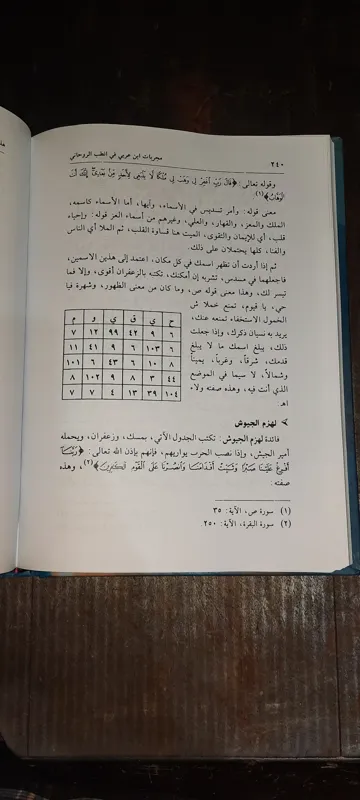 ٢٤٠ مجربات ابن عربي في الطب الروحاني
وقوله تعالى: ﴿قَالَ رَبِّ اغْفِرْ لِي وَهَبْ لِي مُلْكًا لَا يَنْبَغِي لِأَحَدٍ مِنْ بَعْدِي إِنَّكَ أَنْتَ
الْوَهَّابُ﴾(١).
معنى قوله: وأمر تسديس في الأسماء، وأيها، أما الأسماء كاسمه،
الملك والمعز، والقهار، والعلي، وغيرهم من أسماء العز قوله: وإحياء
قلب، أي للإيمان والتقوى، الميت هنا قساوة القلب، ثم الملا أي الناس
والفنا، كلها يحتملان على ذلك.
ثم إذا أردت أن تظهر اسمك في كل مكان، اعتمد إلى هذين الاسمين،
فاجعلهما في مسدس، تشربه إن أمكنك، تكتبه بالزعفران أقوى، وإلا فما
تيسر لك، وهذا معنى قوله ص، وما كان من معنى الظهور، وشهرة فيا
حيء يا قيوم، تمنع خملا ش
الخمول الاستخفاء تمنعه عنك،
يريد به نسيان ذكرك، وإذا جعلت
ذلك، يبلغ اسمك ما لا يبلغ
قدمك، شرقاً، وغرباً، يميناً
وشمالاً، لا سيما في الموضع
الذي أنت فيه، وهذه صفته ولاء
اهـ
ح ي ق ي و م
٦ ٩ ٤٢ ٩٩ ١٢ ٧
٦ ١٠٣ ٩ ٦ ٤١ ١١
٨ ١٠ ٦ ٤٣ ٦ ١٠١
٤٤ ٣ ٨ ٩ ١٠٢ ٨
١٠٤ ٣٩ ١٣ ٤ ٧ ٧
لهزم الجيوش
فائدة لهزم الجيوش: تكتب الجدول الآتي، بمسك، وزعفران، ويحمله
أمير الجيش، وإذا نصب الحرب يواريهم، فإنهم بإذن الله تعالى: ﴿رَبَّنَا
أَفْرِغْ عَلَيْنَا صَبْرًا وَثَبِّتْ أَقْدَامَنَا وَانْصُرْنَا عَلَى الْقَوْمِ الْكَافِرِينَ﴾(٢)، وهذه
صفته:
(١) سورة ص، الآية: ٣٥
(٢) سورة البقرة، الآية: ٢٥٠